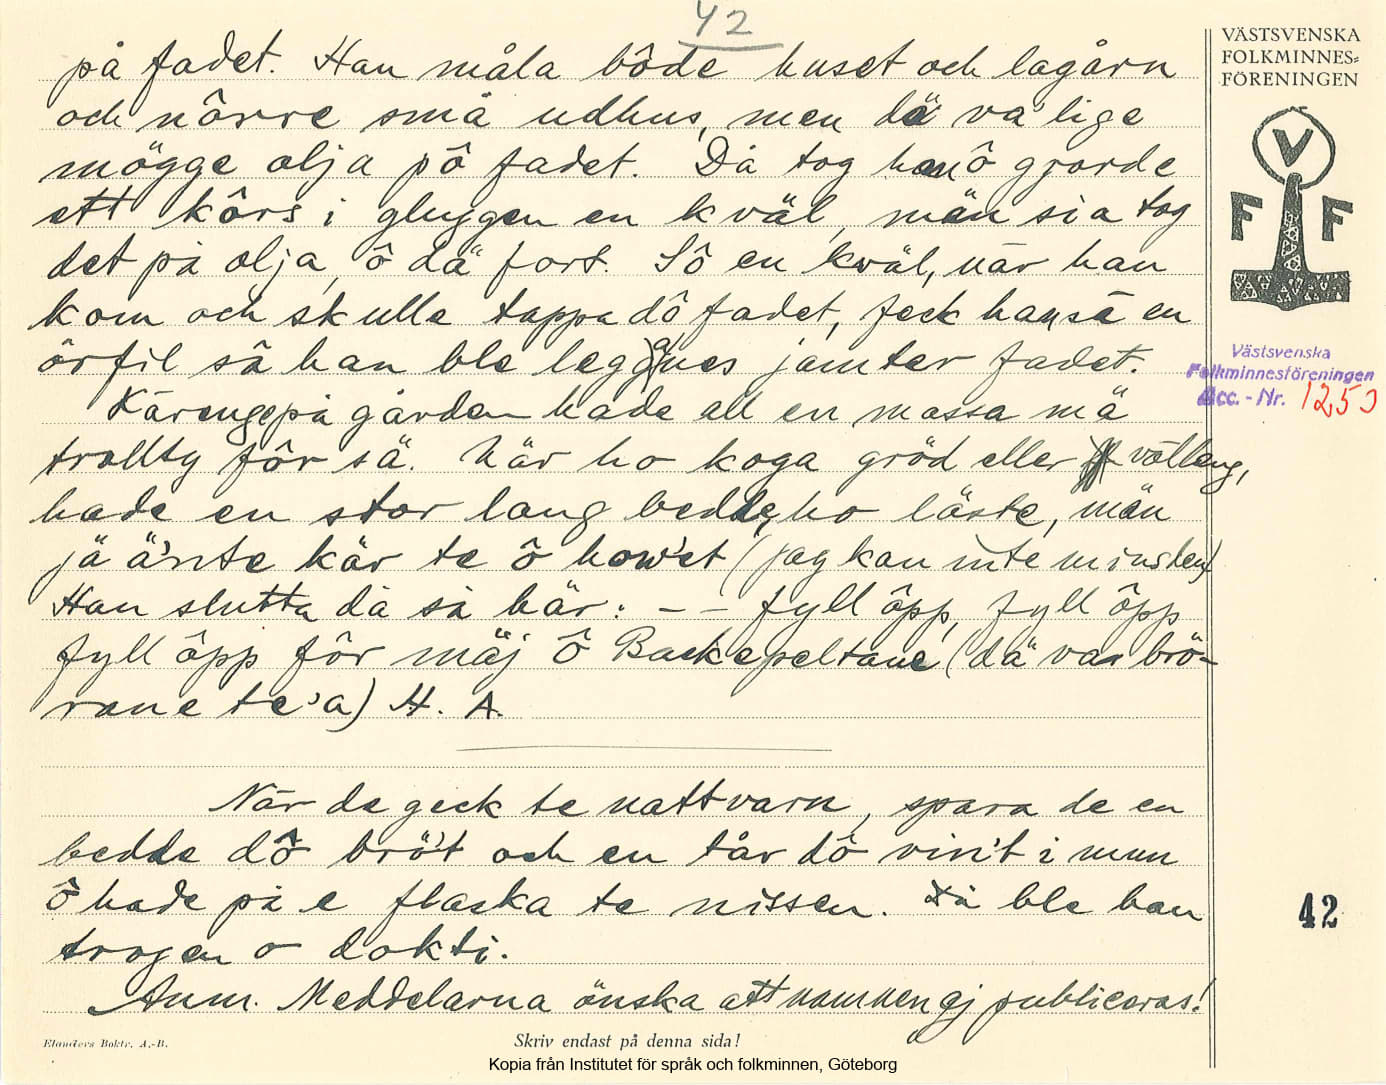 42
på fadet. Han måla bôde huset och lagårn
och nôrre små udhus, men dä va lige
mögge olja pô fadet. Då tog han ô gjorde
ett kôrs i gluggen en kväl, män sia tog
det på olja, ô dä fort. Sô en kväl, när han
kom och skulle tappa dô fadet, feck han sä en
örfil så han ble legganes jamter fadet.
Kärenge på gården hade all en massa mä
trollty fôr sä. När ho koga gröd eller välleng,
hade en stor lang bedde, ho läste, män
jä ä'nte kär te ô how'et (jag kan inte minsken)
Han slutta då så här: – – fyll ôpp, fyll ôpp
fyll ôpp fôr mäj ô Backepeltane (dä var brö-
rane te'a) H. A.
När de geck te nattvarn, spara de en
bedde dô brö't och en tår dô vin't i mun
ô hade på e flaska te nissen. Då ble han
trogen o dokti.
Anm. Meddelarna önska att namnen ej publiceras!
VÄSTSVENSKA
FOLKMINNES-
FÖRENINGEN
V
F F
Västsvenska
Folkminnesföreningen
Acc. - Nr. 1250
42
Elanders Boktr. A.-B.
Skriv endast på denna sida!
Kopia från Institutet för språk och folkminnen, Göteborg